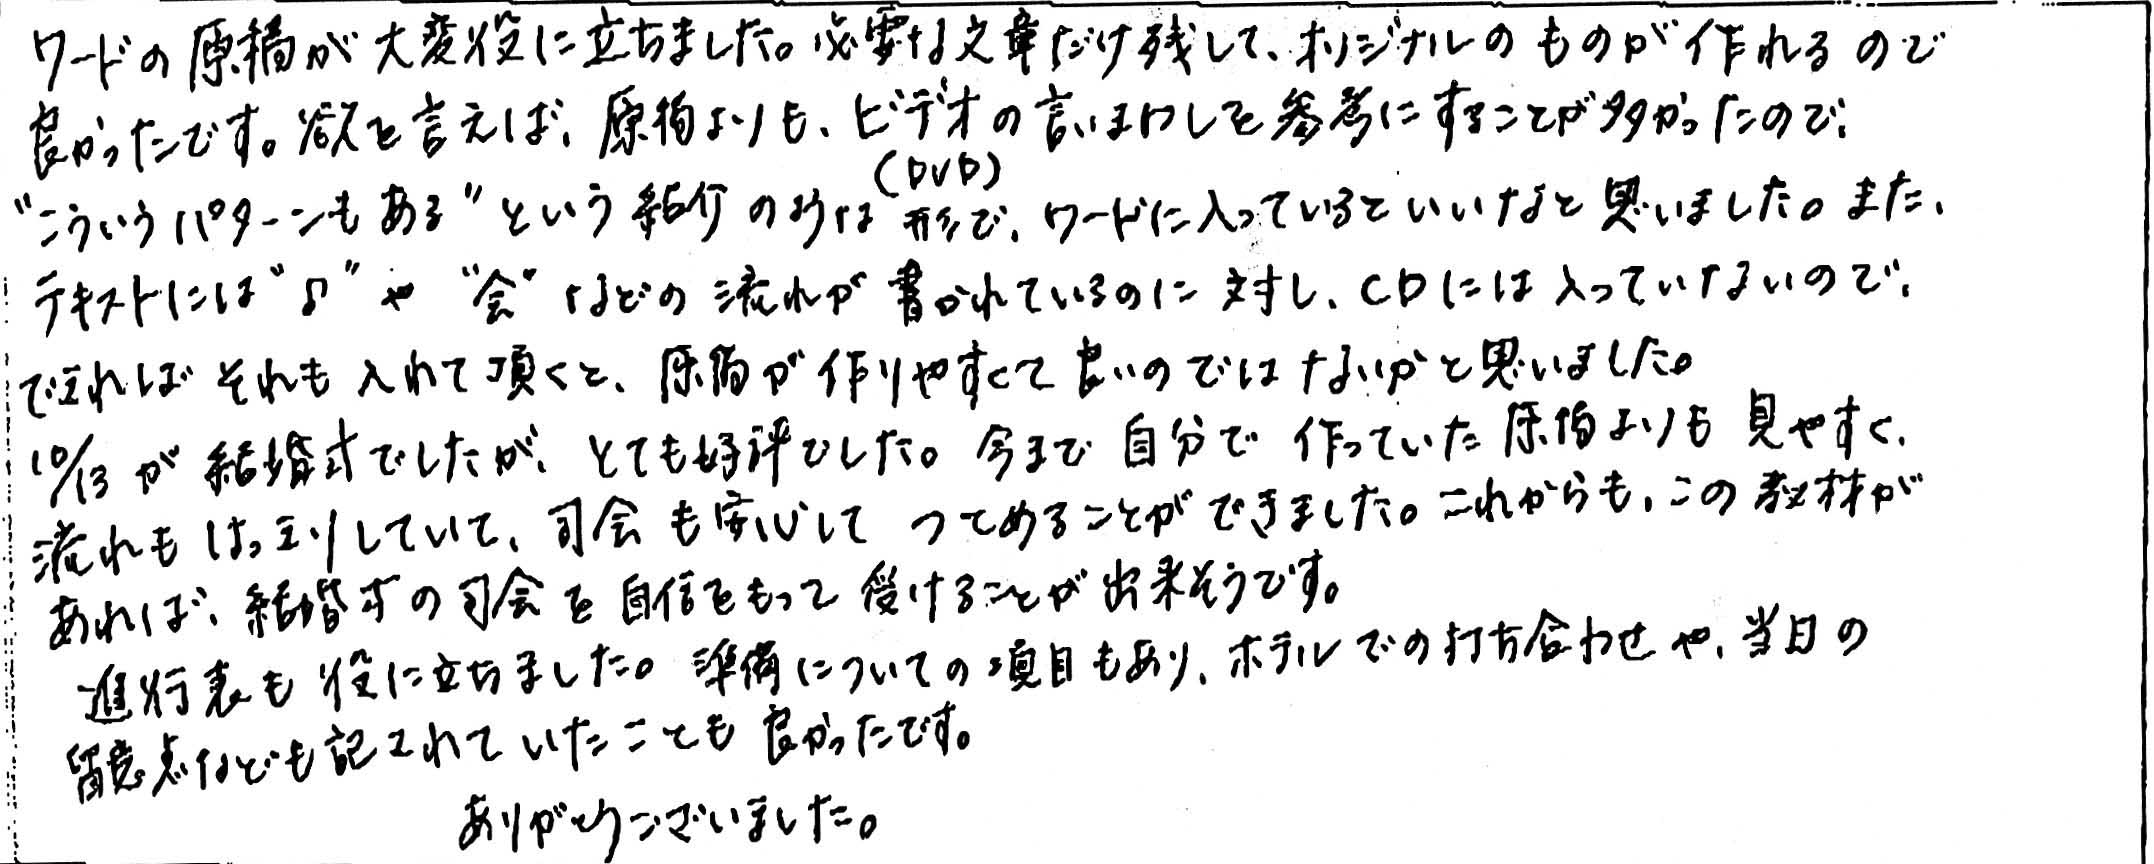 ワードの原稿が大変役に立ちました。必要な文章だけ残して、オリジナルのものが作れるので
良かったです。欲を言えば、原稿よりも、ビデオの言いまわしを参考にすることが多かったので、
(DVD)
"こういうパターンもある"という紹介のような形で、ワードに入っているといいなと思いました。また、
テキストには"♪"や"会"などの流れが書かれているのに対し、CDには入っていないので、
できればそれも入れて頂くと、原稿が作りやすくて良いのではないかと思いました。
10/13が結婚式でしたが、とても好評でした。今まで自分で作っていた原稿よりも見やすく、
流れもはっきりしていて、司会も安心してつとめることができました。これからも、この教材が
あれば、結婚式の司会を自信をもって受けることが出来そうです。
進行表も役に立ちました。準備についての項目もあり、ホテルでの打ち合わせや、当日の
留意点なども記されていたことも良かったです。
ありがとうございました。